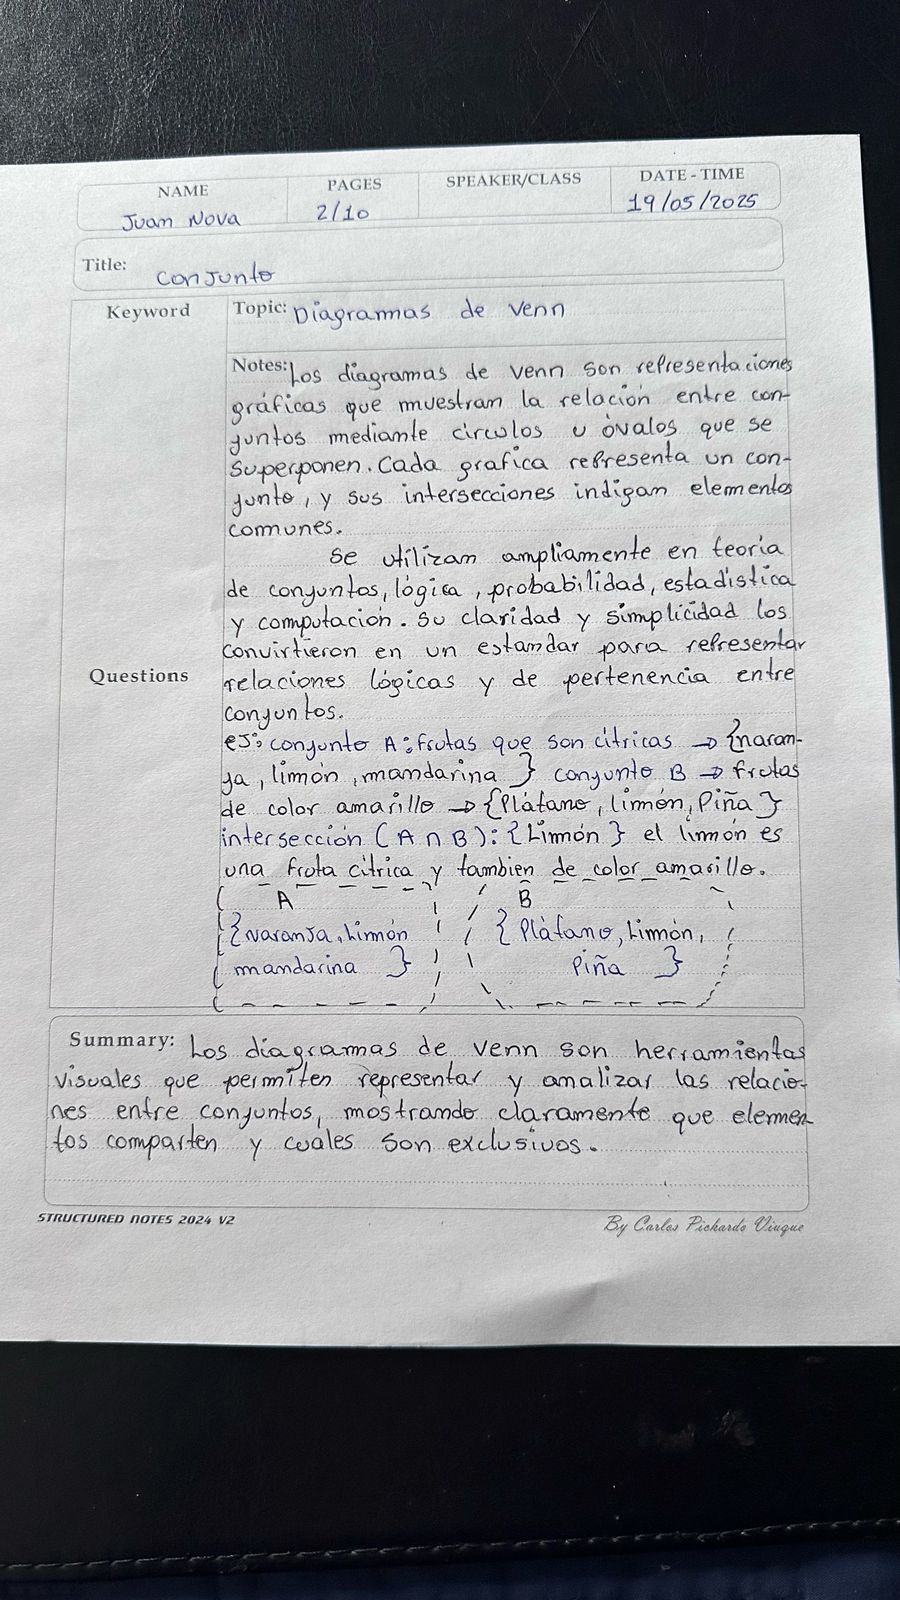 NAME PAGES SPEAKER/CLASS DATE - TIME
Juan Nova 2/10 19/05/2025
Title: Conjunto
Keyword Topic: Diagramas de Venn
Notes: Los diagramas de Venn son representaciones
gráficas que muestran la relación entre con-
juntos mediante círculos u óvalos que se
superponen. Cada grafica representa un con-
junto, y sus intersecciones indigan elementos
comunes.
Se utilizan ampliamente en teoría
de conjuntos, lógica, probabilidad, estadística
y computación. Su claridad y simplicidad los
convirtieron en un estandar para representar
Questions relaciones lógicas y de pertenencia entre
conjuntos.
eJ: conjunto A: frutas que son cítricas → {naran-
ja, limón, mandarina } conjunto B → frutas
de color amarillo → {Plátano, limón, Piña }
intersección (A ∩ B): {Limón } el limón es
una fruta cítrica y tambien de color amarillo.
A B
{Naranja, Limón { Plátano, Limón,
mandarina } Piña }
Summary: Los diagramas de Venn son herramientas
visuales que permiten representar y analizar las relacio-
nes entre conjuntos, mostrando claramente que elemen-
tos comparten y cuales son exclusivos.
STRUCTURED NOTES 2024 V2 By Carlos Pichardo Viuque